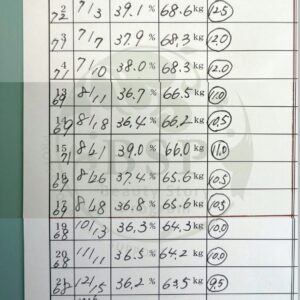 2/72 7/3 39.1% 68.6kg 12.5
3/73 7/7 37.9% 68.3kg 12.0
4/71 7/10 38.0% 68.3kg 12.0
13/69 8/11 36.7% 66.5kg 11.0
14/69 8/18 36.4% 66.2kg 10.5
15/71 8/21 39.0% 66.0kg 11.0
16/69 8/26 37.4% 65.6kg 10.5
17/69 8/28 36.8% 65.6kg 10.5
19/68 10/3 36.3% 64.3kg 10.0
20/68 11/11 36.5% 64.2kg 10.0
12/5 36.2% 63.5kg 9.5